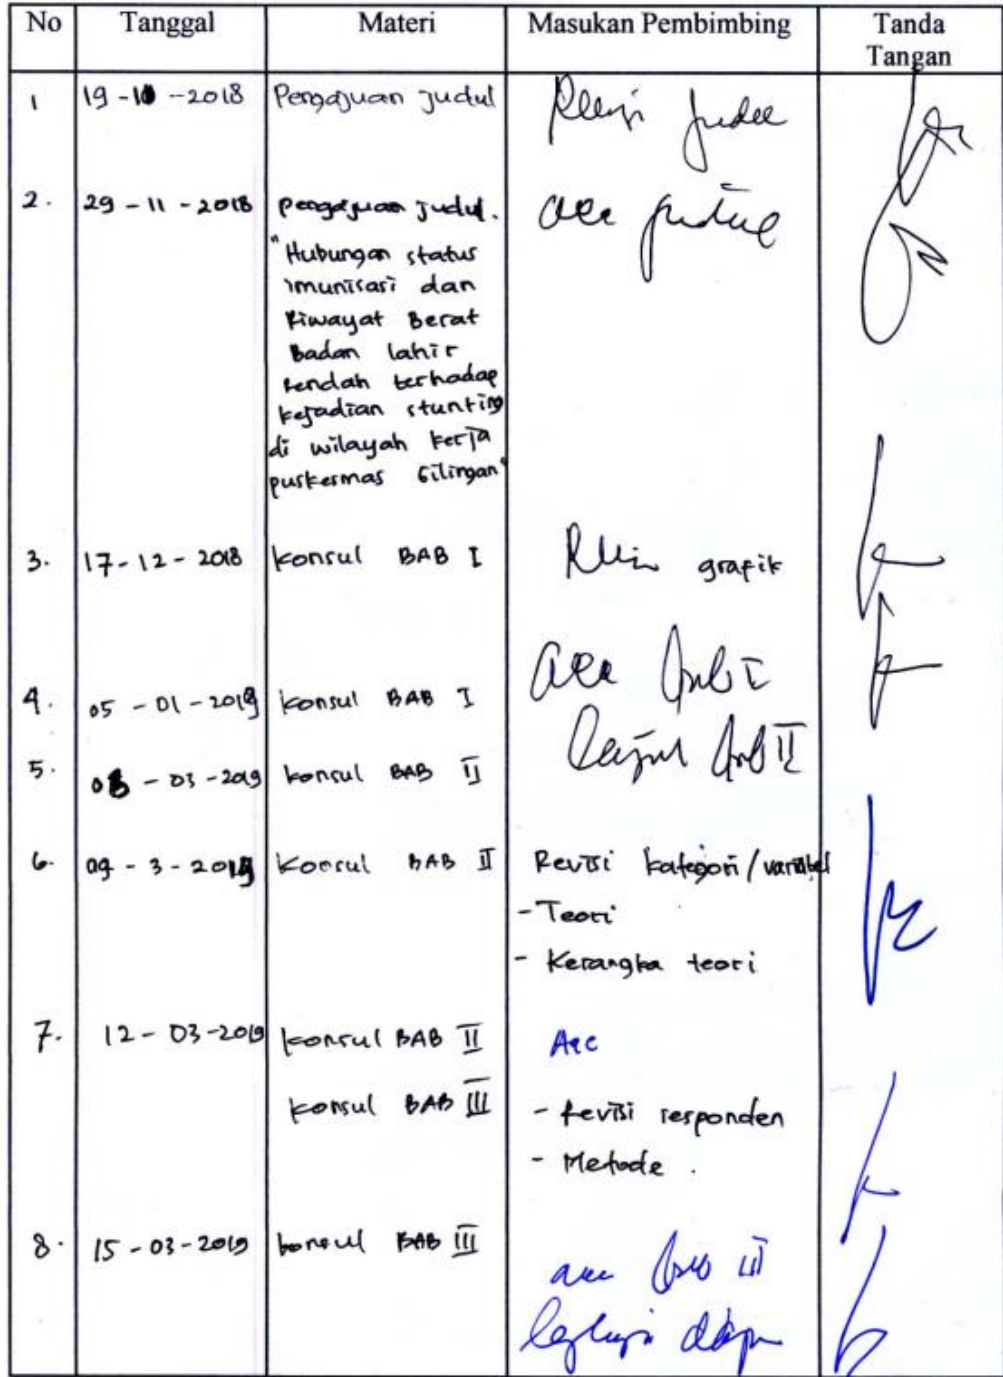 No Tanggal Materi Masukan Pembimbing Tanda
Tangan
1 19-10-2018 Pengajuan judul Revisi judul
2. 29-11-2018 pengajuan judul. acc judul
"Hubungan status
imunisasi dan
Riwayat Berat
Badan lahir
rendah terhadap
kejadian stunting
di wilayah kerja
puskesmas"
3. 17-12-2018 konsul BAB I Revisi grafik
acc bab I
4. 05-01-2019 konsul BAB I
lanjut bab II
5. 03-2019 konsul BAB II
6. 09-3-2019 Konsul BAB II Revisi kategori/variabel
- Teori
- Kerangka teori
7. 12-03-2019 konsul BAB II Acc
konsul BAB III - Revisi responden
- Metode.
8. 15-03-2019 konsul BAB III
acc bab III